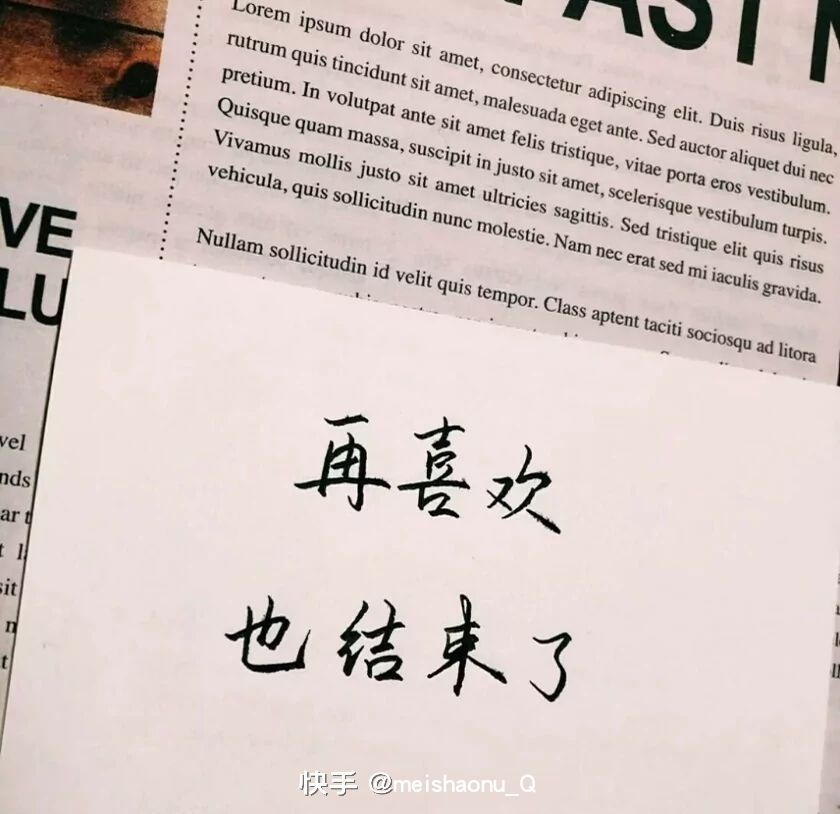 PAST
Lorem ipsum dolor sit amet, consectetur adipiscing elit. Duis risus ligula,
rutrum quis tincidunt sit amet, malesuada eget ante. Sed auctor aliquet dui nec
pretium. In volutpat ante sit amet felis tristique, vitae porta eros vestibulum.
Quisque quam massa, suscipit in justo sit amet, scelerisque vestibulum turpis.
Vivamus mollis justo sit amet ultricies sagittis. Sed tristique elit quis risus
vehicula, quis sollicitudin nunc molestie. Nam nec erat sed mi iaculis gravida.
Nullam sollicitudin id velit quis tempor. Class aptent taciti sociosqu ad litora
VE
LU
vel
nds
ar t
sit
再喜欢
也结束了
快手 @meishaonu_Q